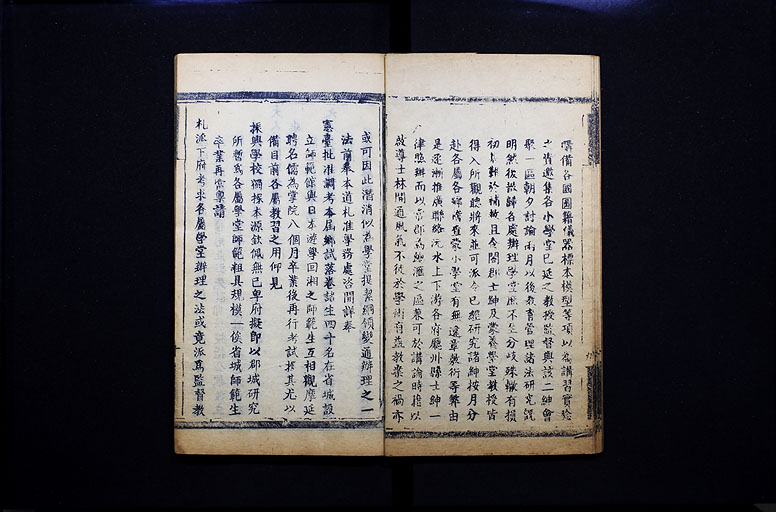 購備各國圖籍儀器標本模型等項以爲講習實驗
之資邀集各小學堂已延之教授監督與該二紳會
聚一區朝夕討論兩月以後教育管理諸法研究説
明然後撥歸各處辦理學堂庶不至分歧殊轍有損
初基難於補救且令閤郡士紳及蒙養學堂教授皆
得入所觀聽將來並可派令已經研究諸紳按月分
赴各屬各鄉稽查蒙小學堂有無違章敷衍等弊由
是逐漸推廣聯絡沅水上下游各府廳州縣士紳一
律照辦而以常郡爲總滙之區兼可於講論時擔以
啟導士林開通風氣不徒於學術有益教案之禍亦
或可因此潛消似爲學堂提絜綱領變通辦理之一
法前奉本道札准學務處咨開詳奉
憲臺批准調考本屆鄉試落卷諸生四十名在省城設
立師範館與日本遊學回湘之師範生互相觀摩延
聘名儒爲掌院八個月卒業後再行考試擇其尤以
備目前各屬教習之用仰見
振興學校獨探本源欽佩無已卑府擬即以郡城研究
所暫爲各屬學堂師範粗具規模一俟省城師範生
卒業再當稟請
札派下府考求各屬學堂辦理之法或竟派爲監督教